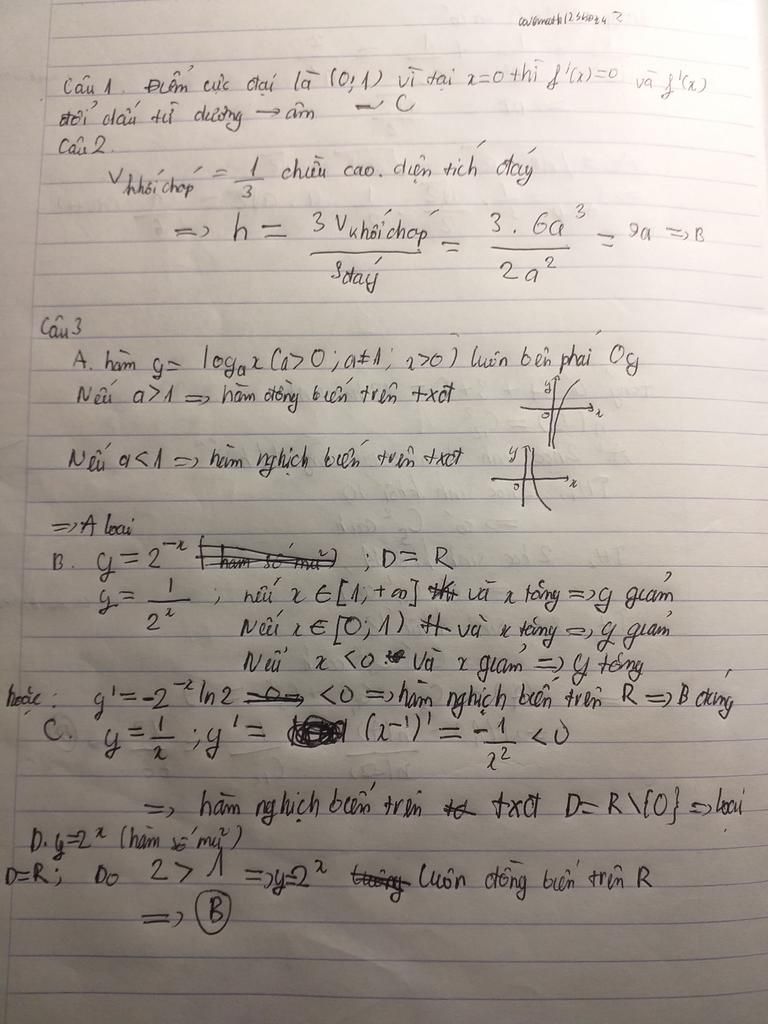 Câu 1. Điểm cực đại là (0;1) vì tại x=0 thì f'(x)=0 và f'(x)
đổi dấu từ dương → âm ~ C
Câu 2.
V khối chóp = 1/3 chiều cao. diện tích đáy
=> h = 3 V khối chóp / S đáy = 3. 6a³ / 2a² = 9a => B
Câu 3
A. hàm y = logₐx (a>0; a≠1; x>0) luôn bên phải Oy
Nếu a>1 => hàm đồng biến trên txđ
y
0
x
Nếu a<1 => hàm nghịch biến trên txđ
y
0
x
=> A loại
B. y = 2^-x (hàm số mũ) ; D = R
y = 1/2^x ; nếu x ∈ [1; +∞] và x tăng => y giảm
Nếu x ∈ [0; 1) và x tăng => y giảm
Nếu x < 0 và x giảm => y tăng
hoặc: y' = -2^-x ln2 < 0 => hàm nghịch biến trên R => B đúng
C. y = 1/x ; y' = (x^-1)' = -1/x² < 0
=> hàm nghịch biến trên txđ D = R \ {0} => loại
D. y=2^x (hàm số mũ)
D=R; Do 2 > 1 => y=2^x luôn đồng biến trên R
=> B